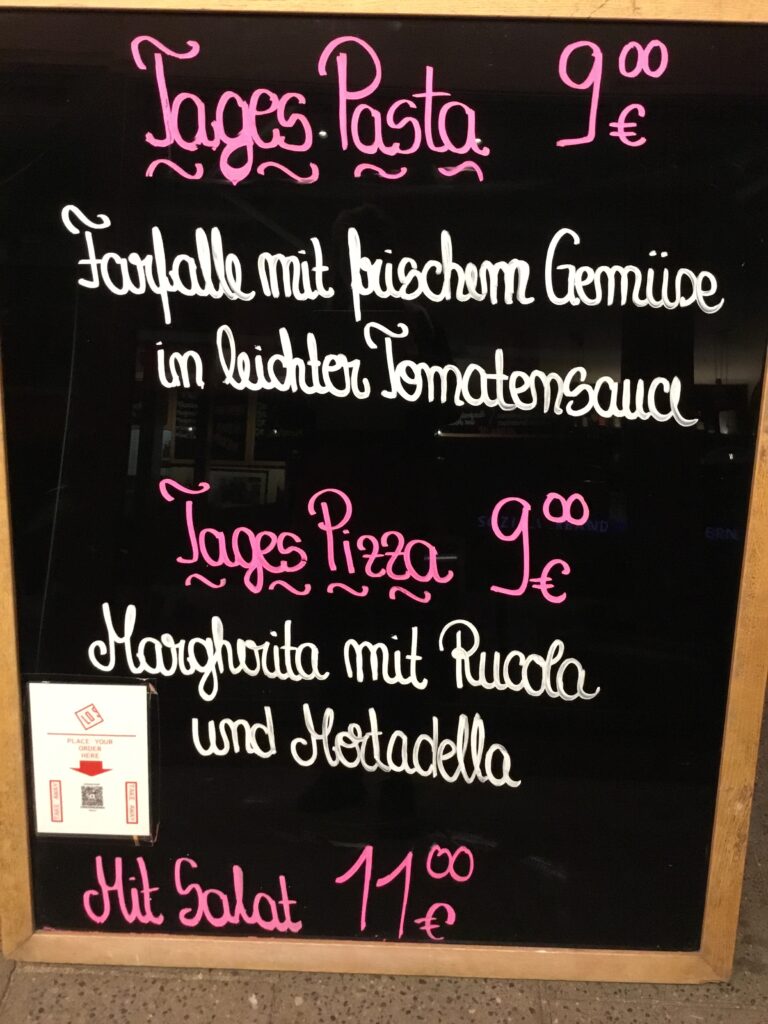 Tages Pasta 9⁰⁰ €
Farfalle mit frischem Gemüse
in leichter Tomatensauce
Tages Pizza 9⁰⁰ €
Margherita mit Rucola
und Mortadella
PLACE YOUR
ORDER
HERE
TAKE AWAY
Mit Salat 11⁰⁰ €